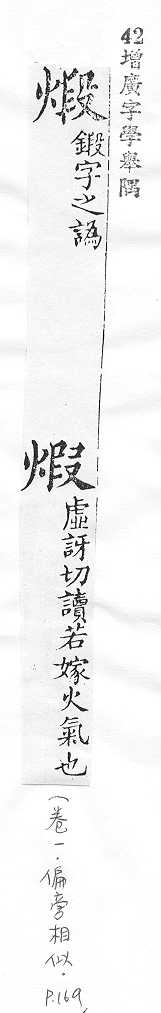 42增廣字學舉隅
煅 鍛字之譌
煆 虛訝切讀若嫁火氣也
(卷一.偏旁相似.P.169)